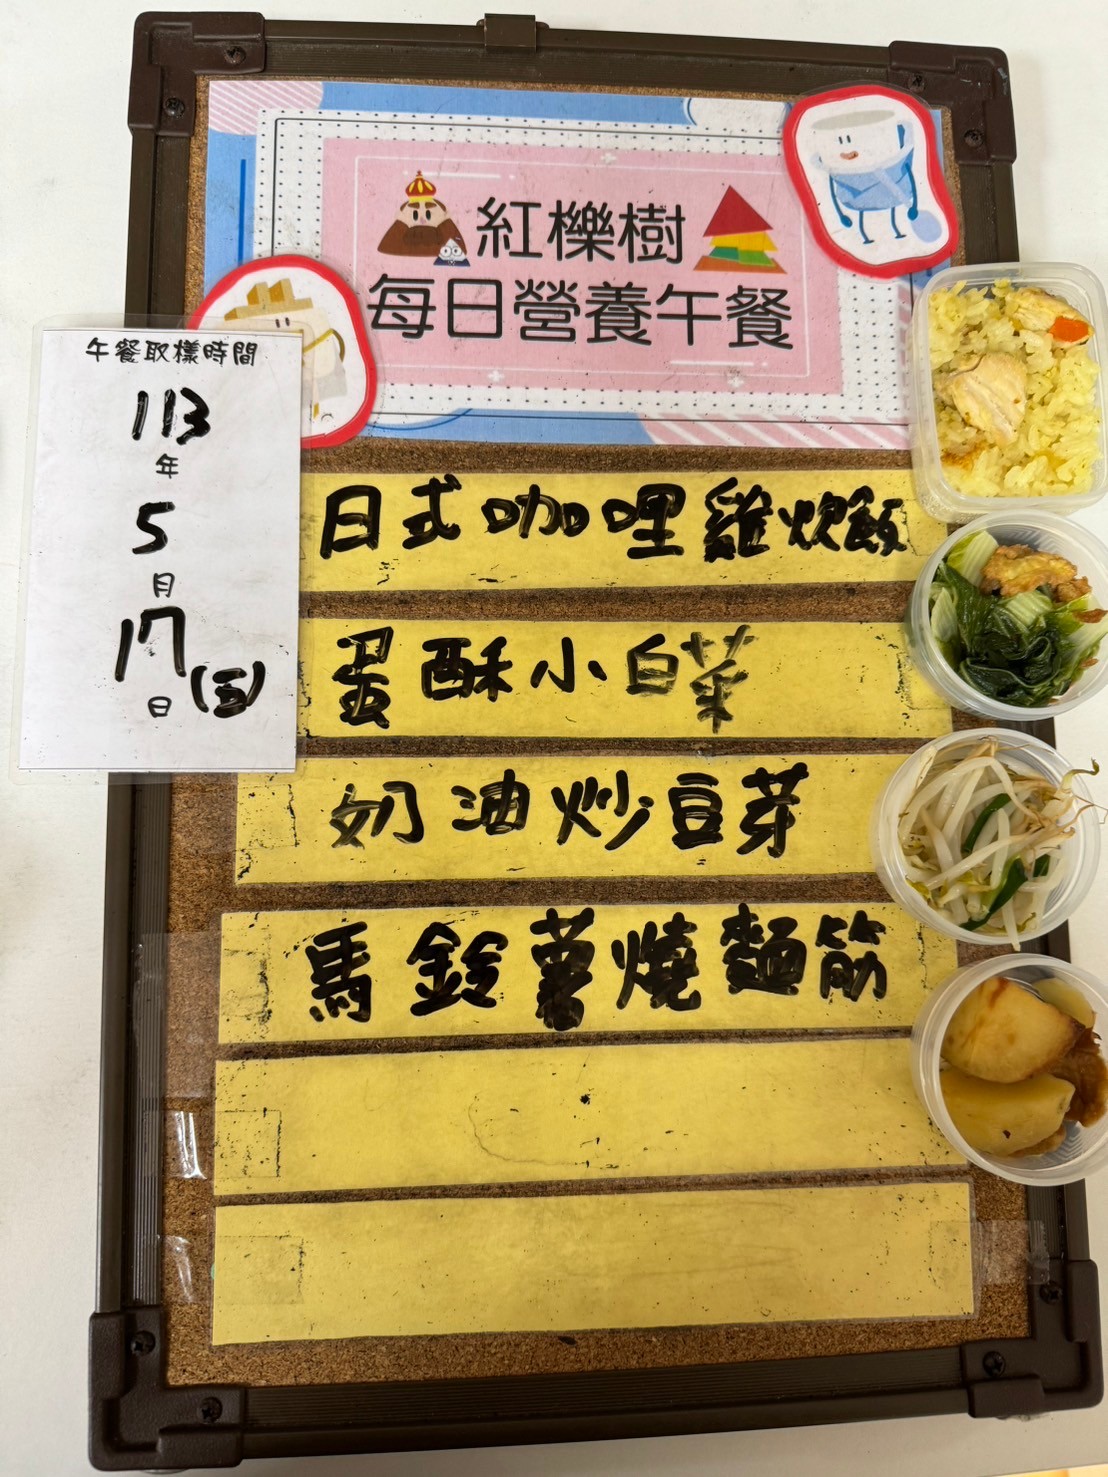 紅櫟樹
每日營養午餐
午餐取樣時間
113
年
5
月
17
日(五)
日式咖哩雞炊飯
蛋酥小白菜
奶油炒豆芽
馬鈴薯燒麵筋